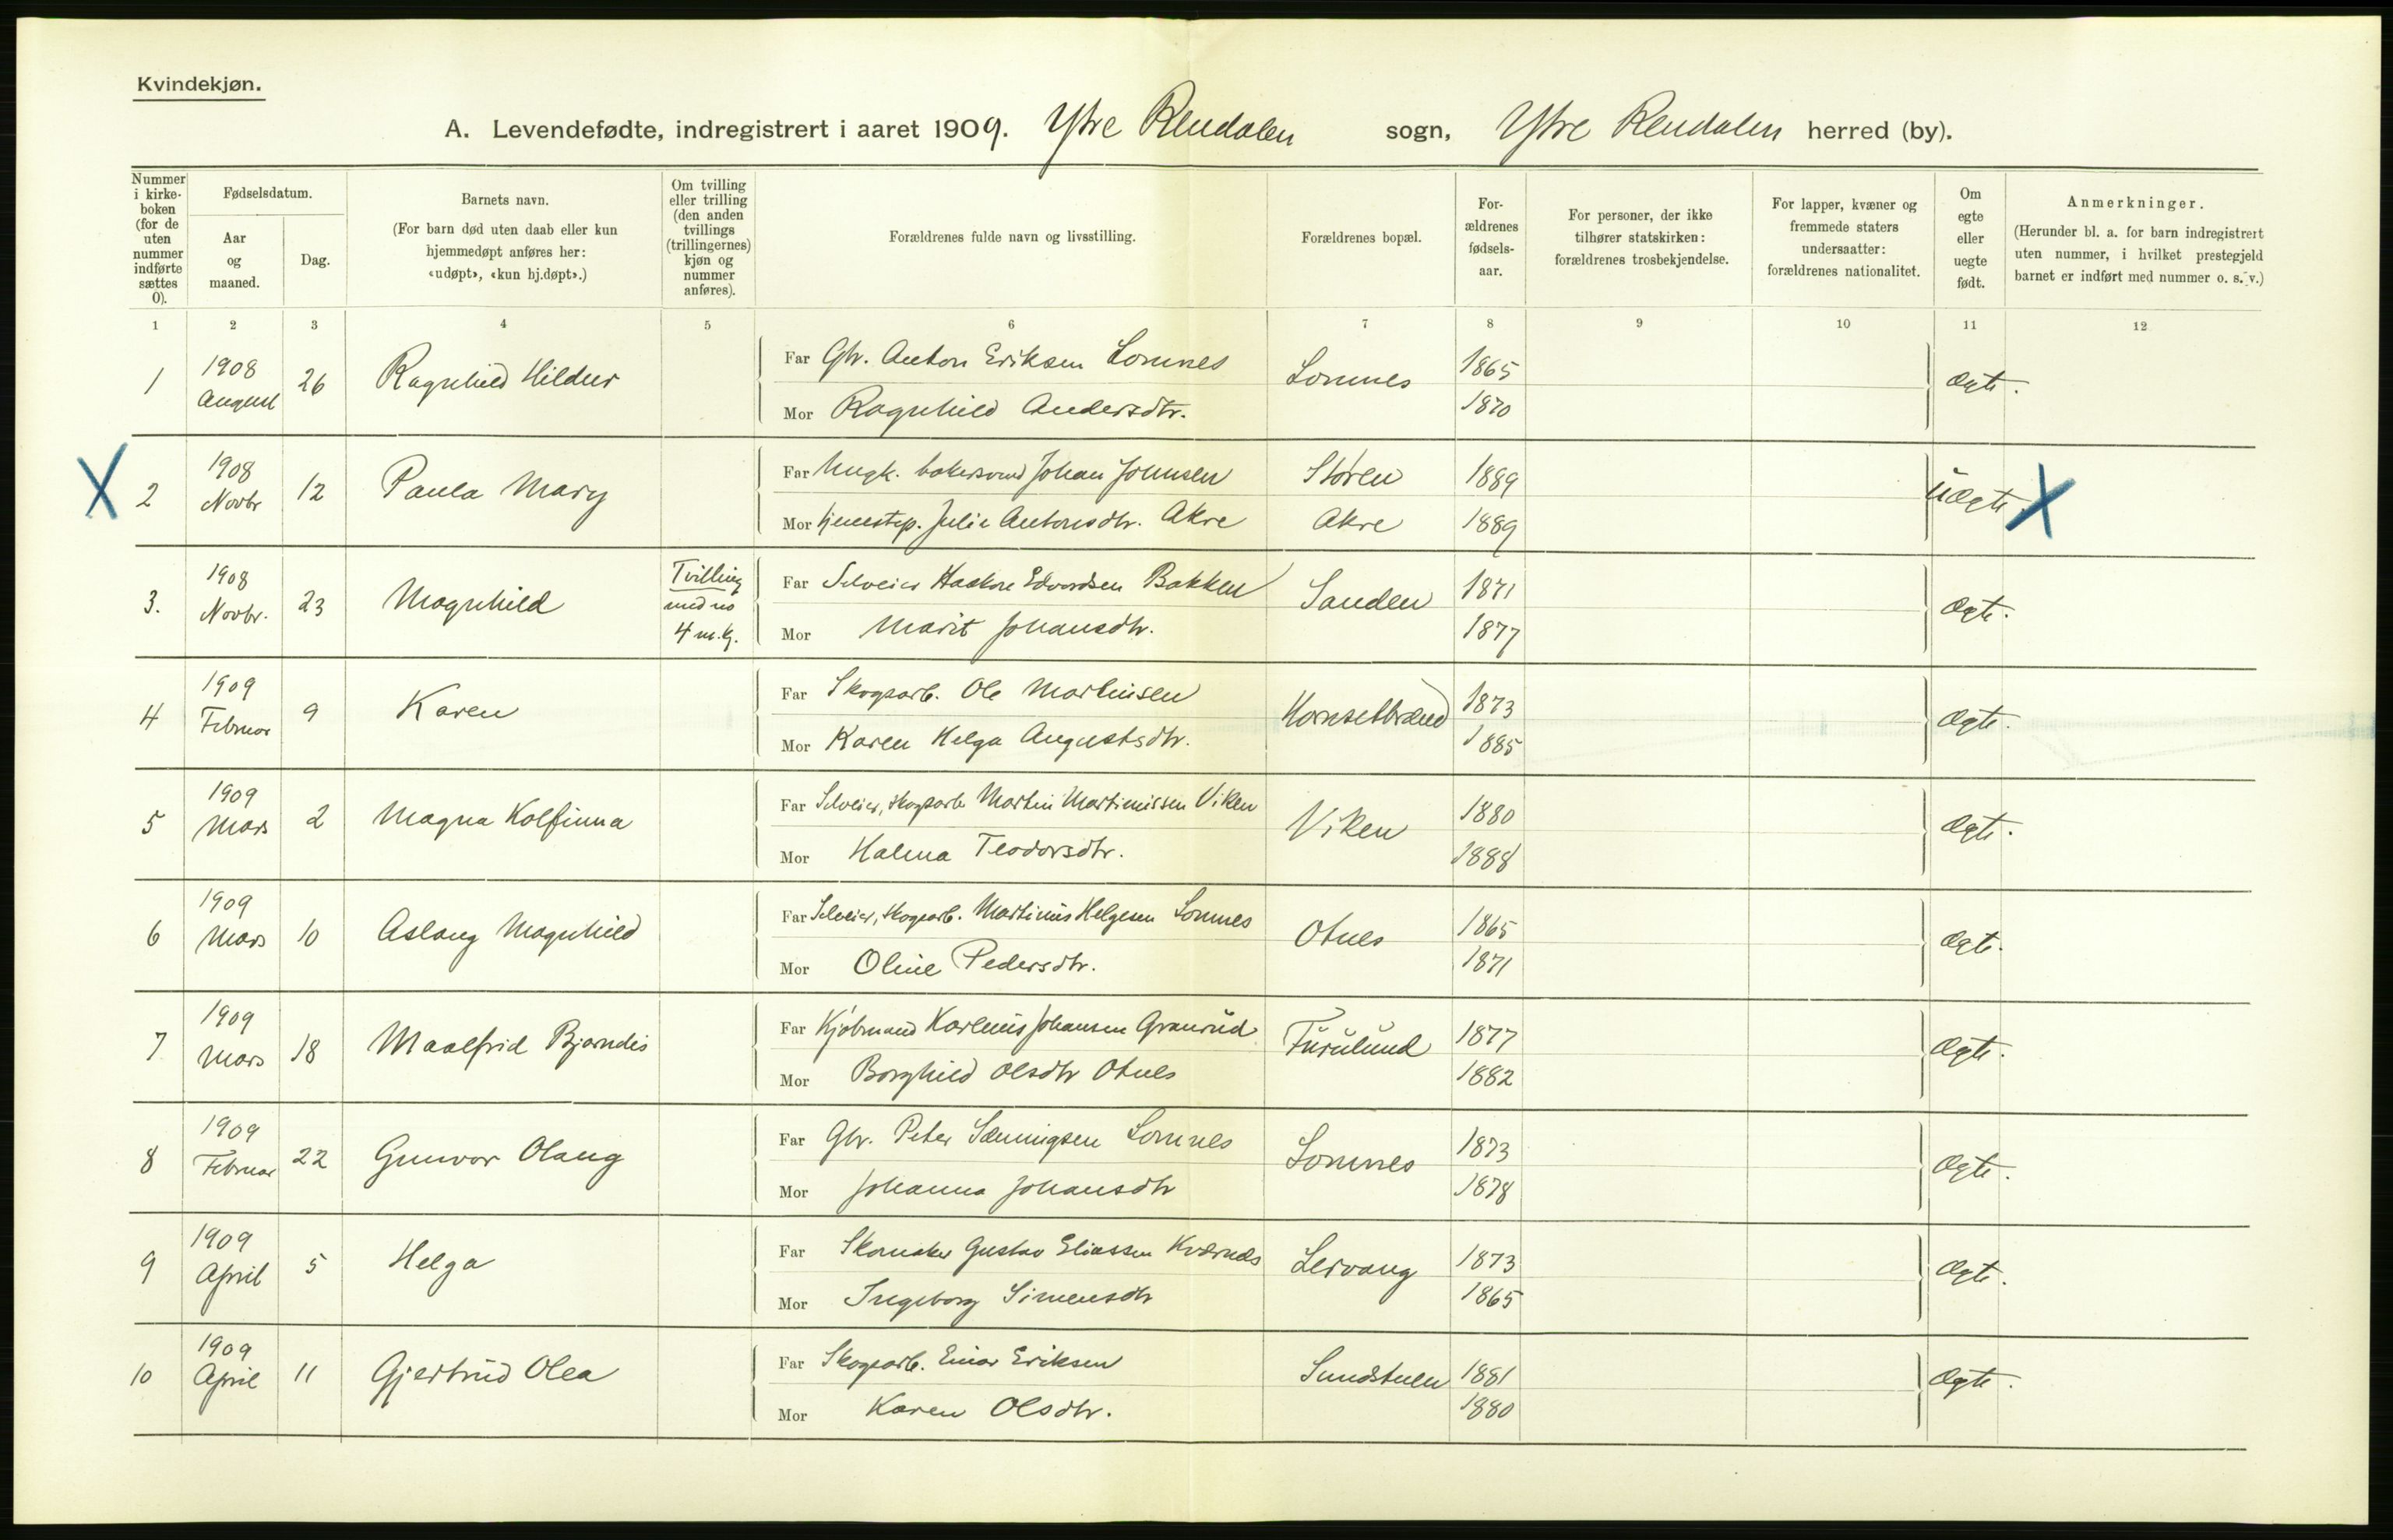 Kvindekjøn.
A. Levendefødte, indregistrert i aaret 1909. Ytre Rendalen sogn, Ytre Rendalen herred (by).
Nummer i kirke-boken (for de uten nummer indførte sættes 0).
Fødselsdatum.
Aar og maaned.
Dag.
Barnets navn.
(For barn død uten daab eller kun hjemmedøpt anføres her: «udøpt», «kun hj.døpt».)
Om tvilling eller trilling (den anden tvillings (trillingernes) kjøn og nummer anføres).
Forældrenes fulde navn og livsstilling.
Forældrenes bopæl.
For-ældrenes fødsels-aar.
For personer, der ikke tilhører statskirken: forældrenes trosbekjendelse.
For lapper, kvæner og fremmede staters undersaatter: forældrenes nationalitet.
Om egte eller uegte født.
Anmerkninger.
(Herunder bl. a. for barn indregistrert uten nummer, i hvilket prestegjeld barnet er indført med nummer o. s. v.)
1 2 3 4 5 6 7 8 9 10 11 12
1 1908 August 26 Ragnhild Hildur
Far Gbr. Anton Eriksen Lomnes Lomnes 1865 ægte.
Mor Ragnhild Andersdtr. 1870
X 2 1908 Novbr 12 Paula Mary
Far Ungk. bakersvend Johan Johnsen Støren 1889 uægte. X
Mor tjenestep. Julie Antonsdtr. Akre Akre 1889
3. 1908 Novbr. 23 Magnhild Tvilling med no 4 m.kj.
Far Selveier Haakon Edvardsen Bakken Sanden 1871 ægte.
Mor Marit Johansdtr. 1877
4 1909 Februar 9 Karen
Far Skogsarb. Ole Martinsen Hornsetbrænd 1873 ægte.
Mor Karen Helga Augustsdtr. 1885
5 1909 Mars 2 Magna Kolfinna
Far Selveier, skogsarb Martin Martinissen Viken Viken 1880 ægte.
Mor Halma Teodorsdtr. 1888
6 1909 Mars 10 Aslaug Magnhild
Far Selveier, skogsarb. Martinus Helgesen Lomnes Otnes 1865 ægte.
Mor Oline Pedersdtr. 1871
7 1909 Mars 18 Maalfrid Bjarndis
Far Kjøbmand Karenius Johansen Granrud Furulund 1877 ægte.
Mor Borghild Olsdtr Otnes 1882
8 1909 Februar 22 Gunvor Olaug
Far Gbr. Peter Sæmingsen Lomnes Lomnes 1873 ægte.
Mor Johanna Johansdtr 1878
9 1909 April 5 Helga
Far Skomaker Gustav Eliassen Kværnæs Lervang 1873 ægte.
Mor Ingeborg Simensdtr 1865
10 1909 April 11 Gjertrud Olea
Far Skogsarb. Einar Eriksen 1881 ægte.
Mor Karen Olsdtr. 1880